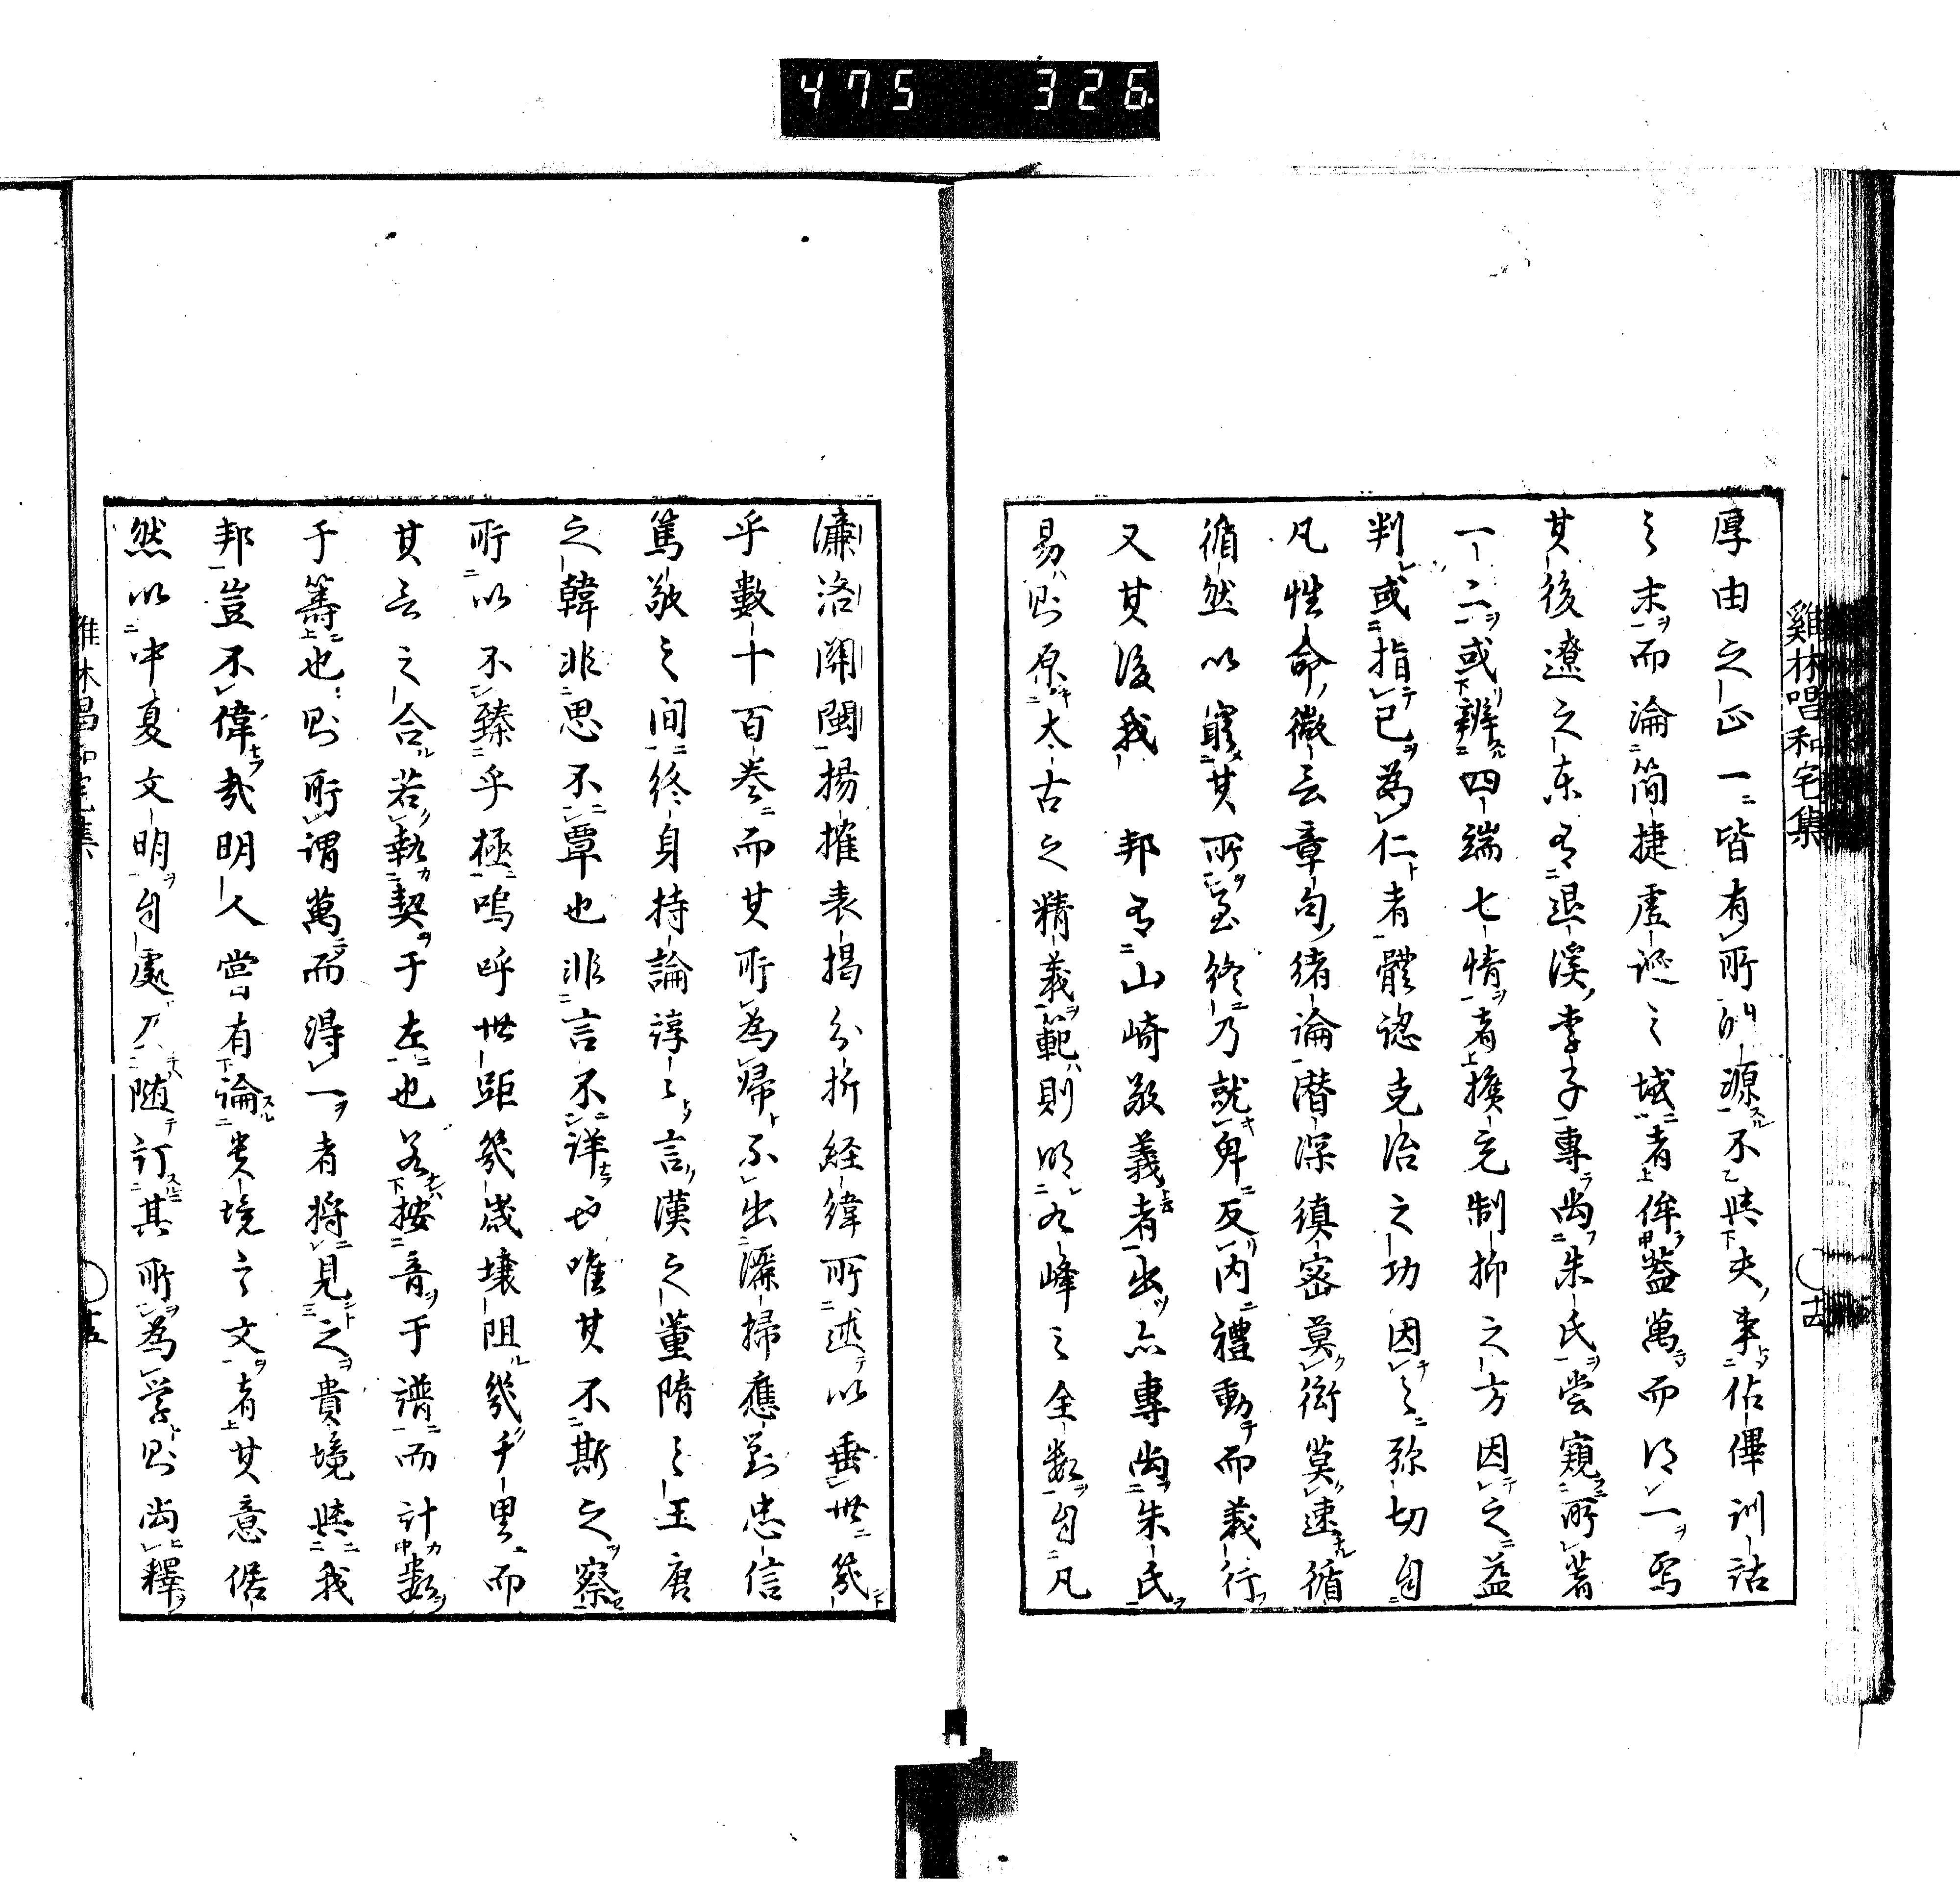 475 326
雞林唱和宅集
厚由之正一皆有所淵源不與夫事佔俾訓詁
之末而淪簡捷虛誕之域者侔蓋萬而得一焉
其後遼之東有退溪李子專尚朱氏嘗窺所著
一二或辨四端七情者擴充制抑之方因之益
判或指己為仁者體認克治之功因之弥切自
凡性命微言章句緒論潛深縝密莫衒莫速循
循然以窮其所至終乃就卑反内禮動而義行
又其後我 邦有山崎敬義者出亦專尚朱氏
易則原太古之精義範則明九峰之全数自凡
濂洛関閩揚搉表揭分折経緯所述以垂世幾
乎數十百卷而其所為帰不出灑掃應對忠信
篤敬之間終身持論諄々言漢之董隋之王唐
之韓非思不覃也非言不詳也唯其不斯之察
所以不臻乎極嗚呼世距幾歲壤阻幾千里而
其言之合若執契于左也若按音于譜而計数
于籌也則所謂萬而得一者将見之貴境與我
邦豈不偉哉明人嘗有論貴境之文者其意偌
然以中夏文明自處乃随訂其所為学則尚釋
雞林唱和宅集